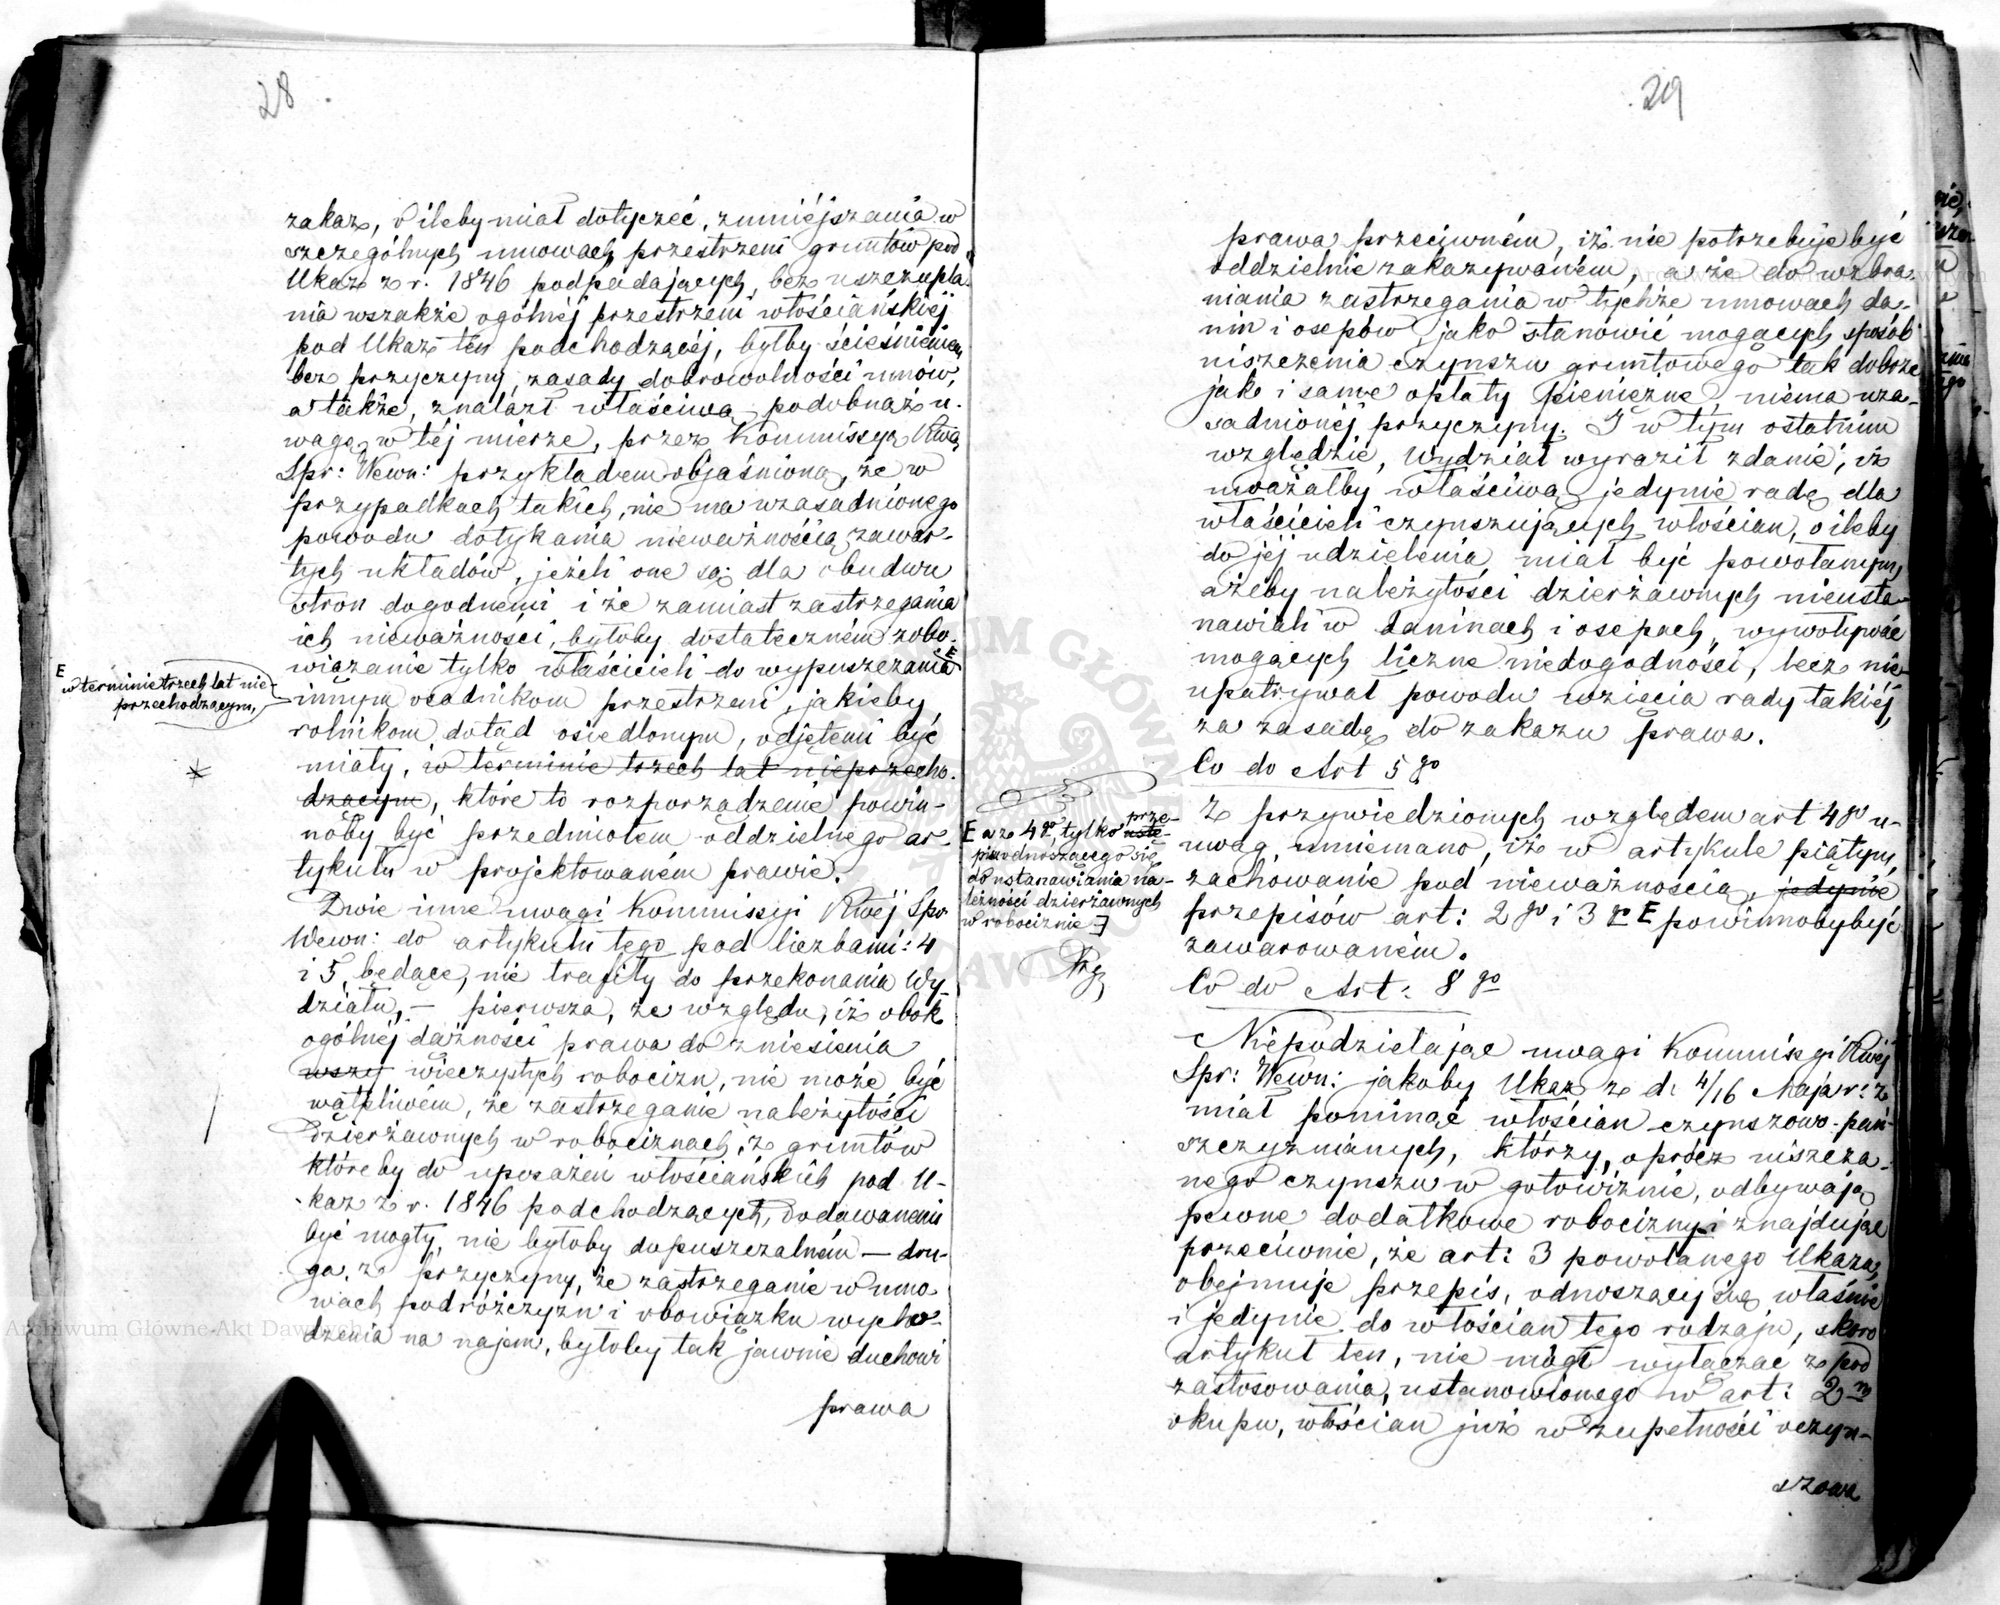 28
zakaz, o ileby miał dotyczeć, zmniéjszania w
szczególnych umowach, przestrzeni gruntów pod
Ukaz z r. 1846 podpadających, bez uszczupla-
nia wszakże ogólnéj przestrzeni włościańskiéj
pod Ukaz ten podchodzącéj, byłby ścieśnieniem
bez przyczyny, zasady dobrowolności umów,
a także, znalazł właściwą podobnąż u-
wagę w téj mierze, przez Kommissyą Rwą
Spr: Wewn: przykładem objaśnioną, że w
przypadkach takich, nie ma uzasadnionego
powodu dotykania nieważnością zawar-
tych układów, jeżeli one są dla obudwu
stron dogodnemi i że zamiast zastrzegania
ich nieważności, byłoby dostateczném zobo-
wiązanie tylko właścicieli do wypuszczania E
E w terminie trzech lat nie-
przechodzącym,
innym osadnikom przestrzeni, jakieby
rolnikom dotąd osiedlonym, odjętemi być
miały, w terminie trzech lat nieprzecho-
dzącym, które to rozporządzenie powin-
noby być przedmiotem oddzielnego ar-
tykułu w projektowaném prawie.
Dwie inne uwagi Kommissyi Rwéj Spr
Wewn: do artykułu tego pod liczbami: 4
i 5, będące, nie trafiły do przekonania Wy-
działu, — pierwsza, ze względu, iż obok
ogólnéj dążności prawa do zniesienia
wszy wieczystych robocizn, nie może być
wątpliwém, że zastrzeganie należytości
dzierżawnych w robociznach, z gruntów
któreby do uposażeń włościańskich pod U-
kaz z r. 1846 podchodzących, dodawanemi
być mogły, nie byłoby dopuszczalném — dru-
ga, z przyczyny, że zastrzeganie w umo-
wach podróżczyzn i obowiązku wycho-
dzenia na najem, byłoby tak jawnie duchowi
prawa
29
prawa przeciwném, iż nie potrzebuje być
oddzielnie zakazywaném, a że do wzbra-
niania zastrzegania w tychże umowach da-
nin i osepów, jako stanowić mogących sposób
niszczenia czynszu gruntowego tak dobrze
jako i same opłaty pieniężne, niema uza-
sadnionéj przyczyny. I w tym ostatnim
względzie, Wydział wyraził zdanie, iż
uważałby właściwą jedynie radę dla
właścicieli czynszujących włościan, o ileby
do jéj udzielenia miał być powołanym,
ażeby należytości dzierżawnych nieusta-
nawiali w daninach i osepach, wywoływać
mogących liczne niedogodności, lecz nie
upatrywał powodu wzięcia rady takiéj
za zasadę do zakazu prawa.
Co do Art 5go
Z przywiedzionych względem art 4go u-
wag, mniemano, iż w artykule piątym,
zachowanie pod nieważnością, jedynie
przepisów art: 2go i 3go E powinnoby być
zawarowaném.
E a z 4go tylko prze-
uste-
pisu odnoszącego się
do ustanawiania na-
leżności dzierżawnych
w robociznie
Co do Art: 8go
Niepodzielając uwagi Kommissyi Rwéj
Spr: Wewn: jakoby Ukaz z d. 4/16 Maja r: z
miał pominąć włościan czynszowo-pań-
szczyznianych, którzy, oprócz niszcza-
nego czynszu w gotowiźnie, odbywają
pewne dodatkowe robocizny i znajdując
przeciwnie, że art: 3 powołanego Ukazu,
obejmuje przepis, odnoszący się właśnie
i jedynie do włościan tego rodzaju, skoro
artykuł ten, nie mógł wyłączać z pod
zastosowania, ustanowionego w art: 2m
okupu, włościan już w zupełności oczyn-
szowa
Archiwum Główne Akt Dawnych